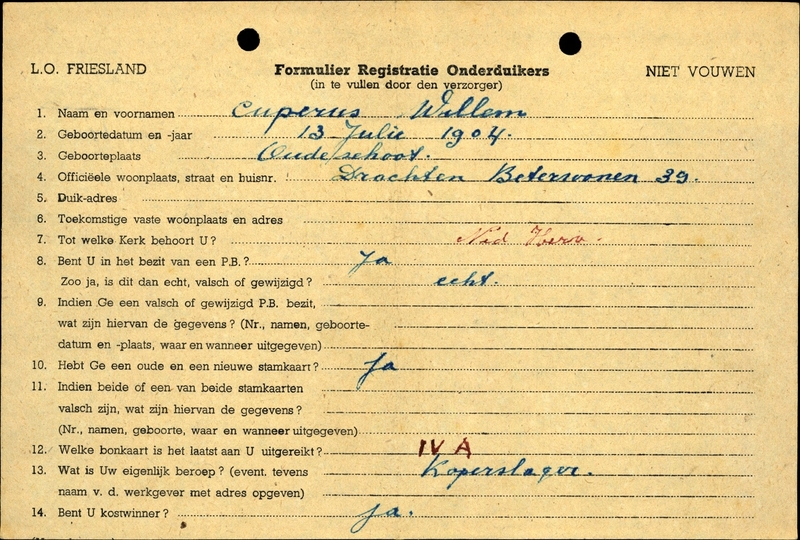 L.O. FRIESLAND
Formulier Registratie Onderduikers
NIET VOUWEN
(in te vullen door den verzorger)
1. Naam en voornamen Cuperus Willem
2. Geboortedatum en -jaar 13 Julie 1904.
3. Geboorteplaats Oudeschoot.
4. Officiëele woonplaats, straat en huisnr. Drachten Beterwonen 39.
5. Duik-adres
6. Toekomstige vaste woonplaats en adres
7. Tot welke Kerk behoort U? Ned Herv.
8. Bent U in het bezit van een P.B.? Ja
Zoo ja, is dit dan echt, valsch of gewijzigd? echt.
9. Indien Ge een valsch of gewijzigd P.B. bezit,
wat zijn hiervan de gegevens? (Nr., namen, geboorte-
datum en -plaats, waar en wanneer uitgegeven)
10. Hebt Ge een oude en een nieuwe stamkaart? Ja
11. Indien beide of een van beide stamkaarten
valsch zijn, wat zijn hiervan de gegevens?
(Nr., namen, geboorte, waar en wanneer uitgegeven)
12. Welke bonkaart is het laatst aan U uitgereikt? IV A
13. Wat is Uw eigenlijk beroep? (event. tevens Koperslager.
naam v. d. werkgever met adres opgeven)
14. Bent U kostwinner? ja.